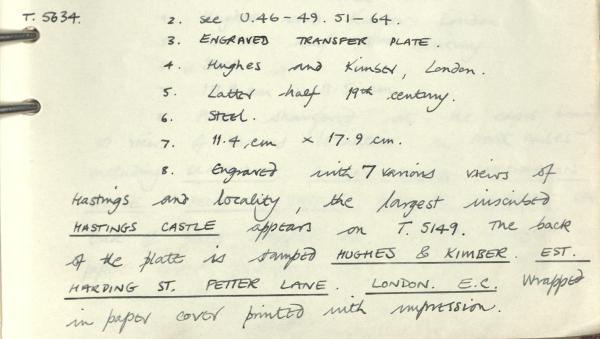 T. 5634. 2. see U.46-49. 51-64.
3. ENGRAVED TRANSFER PLATE.
4. Hughes and Kimber, London.
5. Latter half 19th century.
6. STEEL.
7. 11.4 cm x 17.9 cm.
8. Engraved with 7 various views of
Hastings and locality, the largest inscribed
HASTINGS CASTLE appears on T. 5149. The back
of the plate is stamped HUGHES & KIMBER. EST.
HARDING ST. PETTER LANE. LONDON. E.C. Wrapped
in paper cover printed with impression.